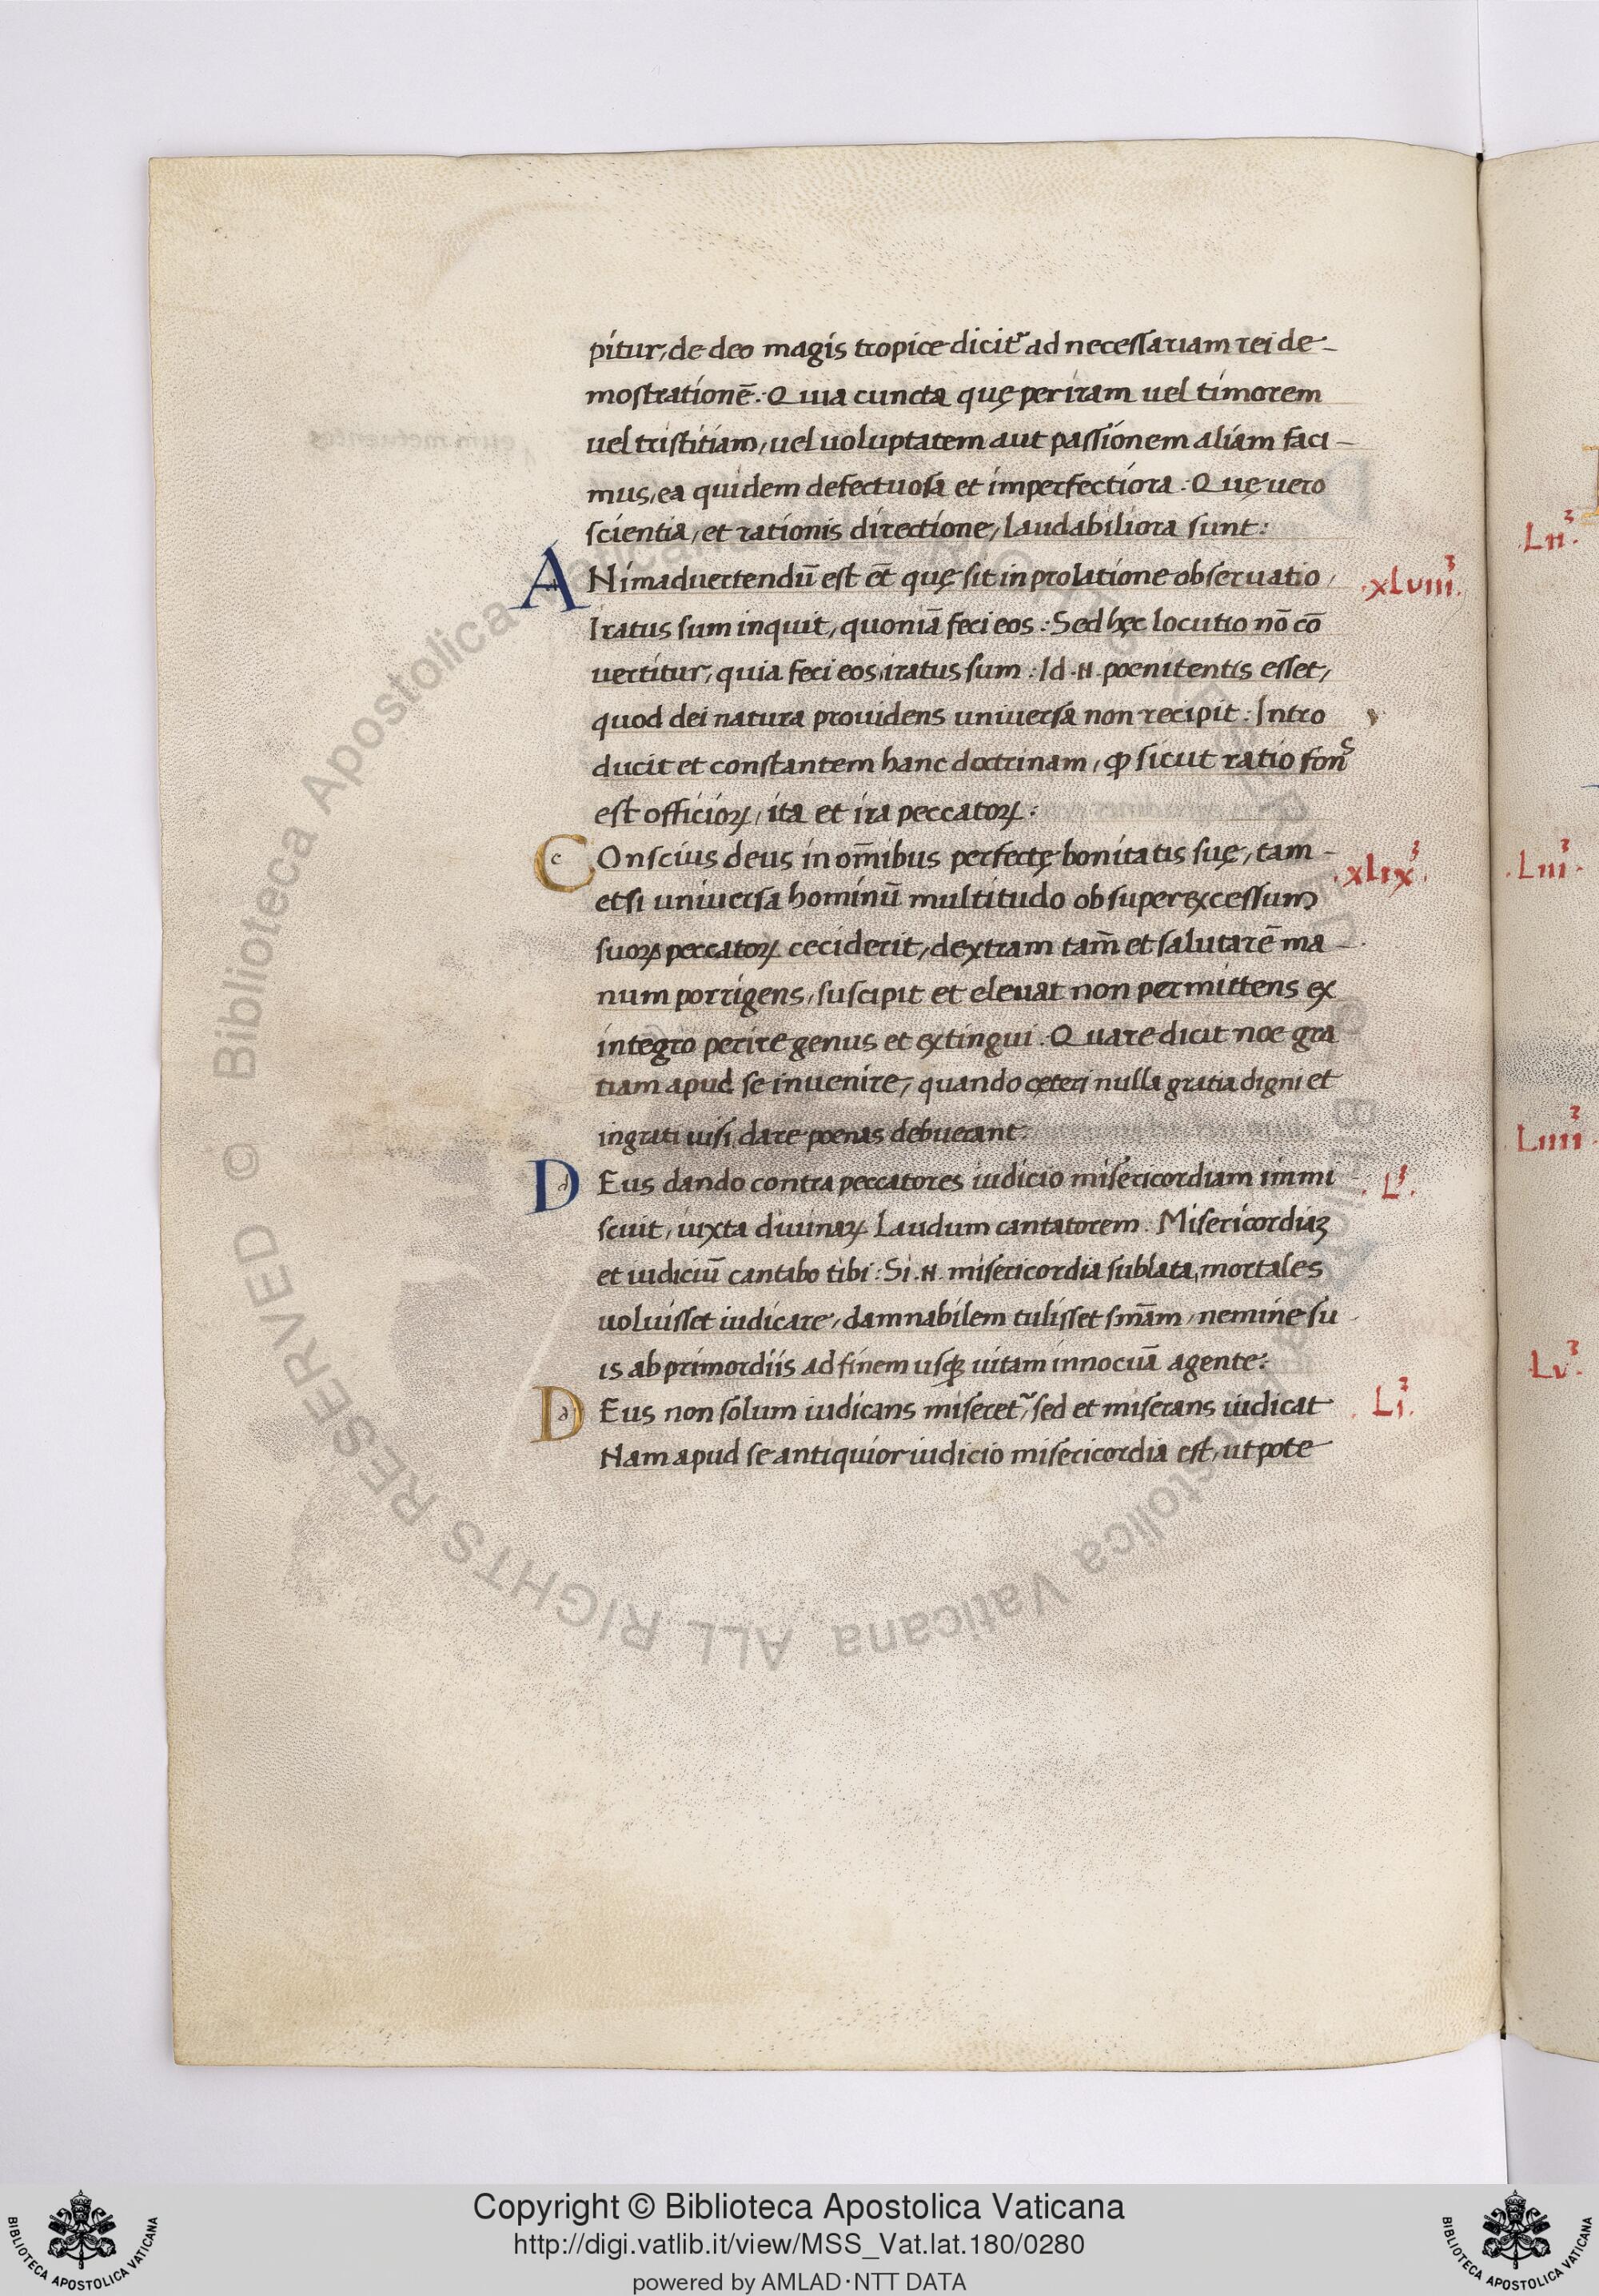 pitur, de deo magis tropice dicit᷑ ad necessariam rei de-
mostrationē. Quia cuncta quę per iram uel timorem
uel tristitiam, uel uoluptatem aut passionem aliam faci-
mus, ea quidem defectuosa et imperfectiora. Quę uero
scientia, et rationis directione, laudabiliora sunt:
ANimaduertendū est et̄ quę sit in prolatione obseruatio, .xLviii.
Iratus sum inquit, quoniā feci eos: Sed hęc locutio nō cō
uertitur, quia feci eos, iratus sum: Id .N. poenitentis esset,
quod dei natura prouidens uniuersa non recipit: Intro
ducit et constantem hanc doctrinam, ꝙ sicut ratio fons
est officioꝝ, ita et ira peccatoꝝ:
COnscius deus in om̄ibus perfectę bonitatis suę, tam- .xLix.
etsi uniuersa hominū multitudo ob superexcessum
suoꝝ peccatoꝝ ceciderit, dextram tam̄ et salutarē ma-
num porrigens, suscipit et eleuat non permittens ex
integro perire genus et extingui. Quare dicit noe gra
tiam apud se inuenire, quando cęteri nulla gratia digni et
ingrati uisi, dare poenas debuerant.
DEus dando contra peccatores iudicio misericordiam immi .L.
scuit, iuxta diuinaꝝ Laudum cantatorem. Misericordiaꝫ
et iudiciū cantabo tibi: Si .N. misericordia sublata, mortales
uoluisset iudicare, damnabilem tulisset sn̄iam, nemine su
is ab primordiis ad finem usqꝫ uitam innocuā agente:
DEus non solum iudicans miseret᷑, sed et miserans iudicat .Li.
Nam apud se antiquior iudicio misericordia est, ut pote
.Lii.
.Liii.
.Liiii.
.Lv.
© Biblioteca Apostolica Vaticana ALL RIGHTS RESERVED © Biblioteca Apostolica Vaticana ALL RIGHTS RESERVED
Copyright © Biblioteca Apostolica Vaticana
http://digi.vatlib.it/view/MSS_Vat.lat.180/0280
powered by AMLAD·NTT DATA
BIBLIOTECA APOSTOLICA VATICANA
BIBLIOTECA APOSTOLICA VATICANA